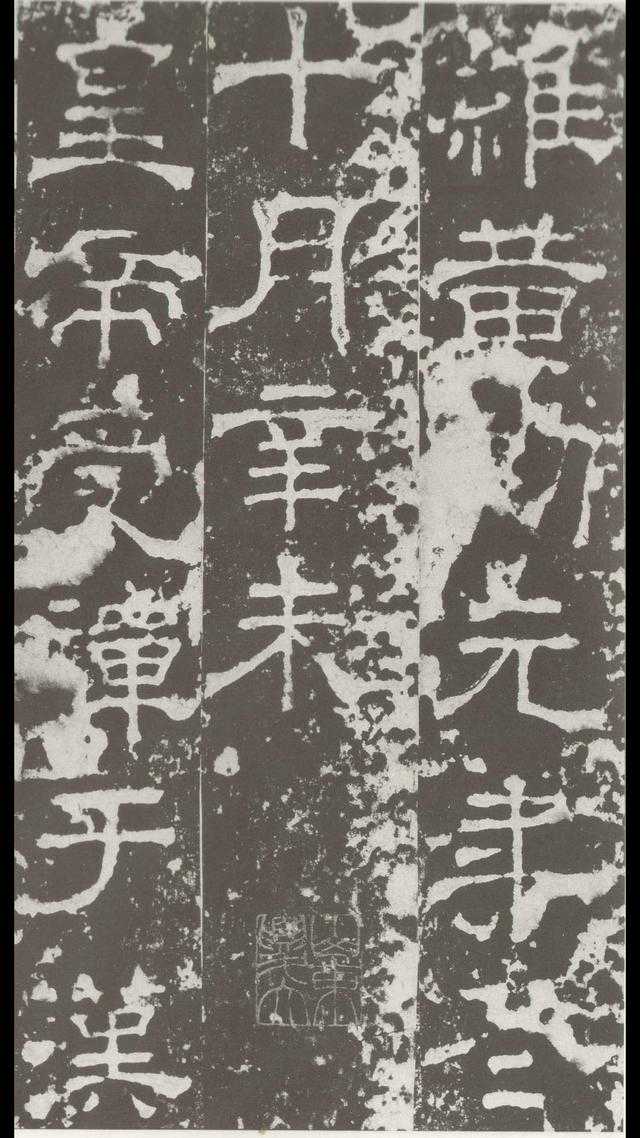 維黃初元年冬
十月辛未
皇帝受禪于漢